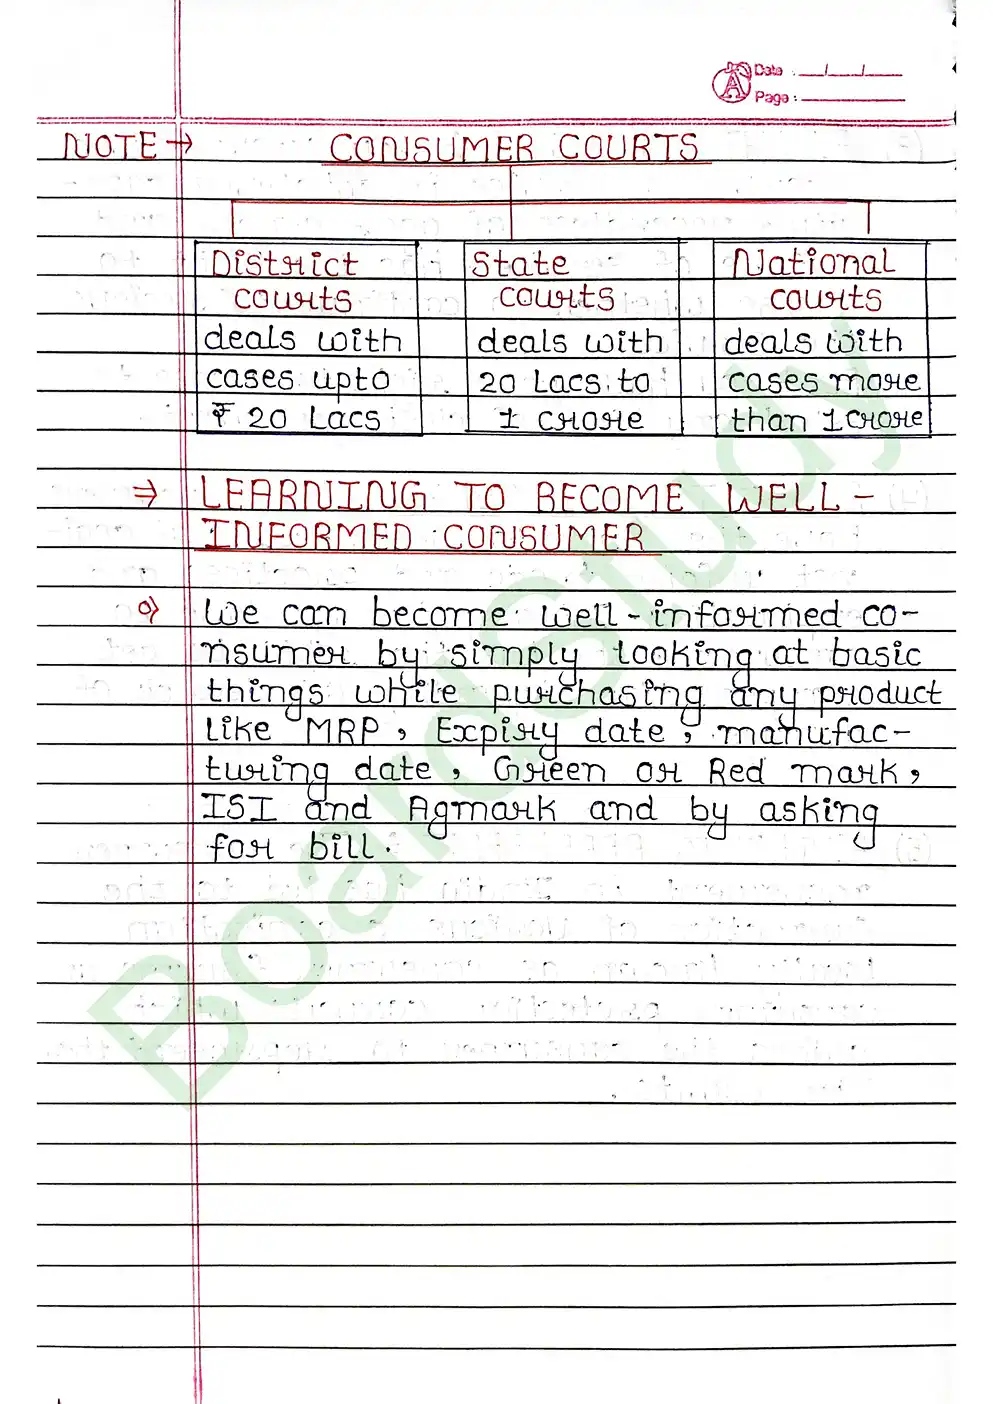 Date : __/__/__
Page : ______
NOTE → CONSUMER COURTS
District courts deals with cases upto ₹ 20 Lacs
State courts deals with 20 Lacs to 1 crore
National courts deals with cases more than 1 crore
⇒ LEARNING TO BECOME WELL-
INFORMED CONSUMER
We can become well-informed co-
nsumer by simply looking at basic
things while purchasing any product
like MRP, Expiry date, manufac-
turing date, Green or Red mark,
ISI and Agmark and by asking
for bill.
BoardStudy